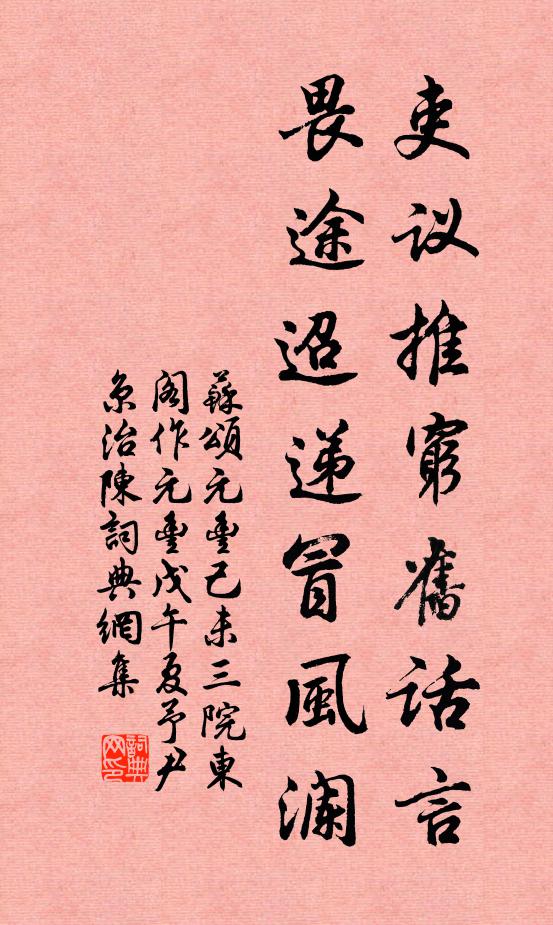 吏议推窮舊话言
畏途迢递冒風澜
蘇頌元豐己未三院東
閣作元豐戊午夏予尹
京治陳詞典網集
詞典网印